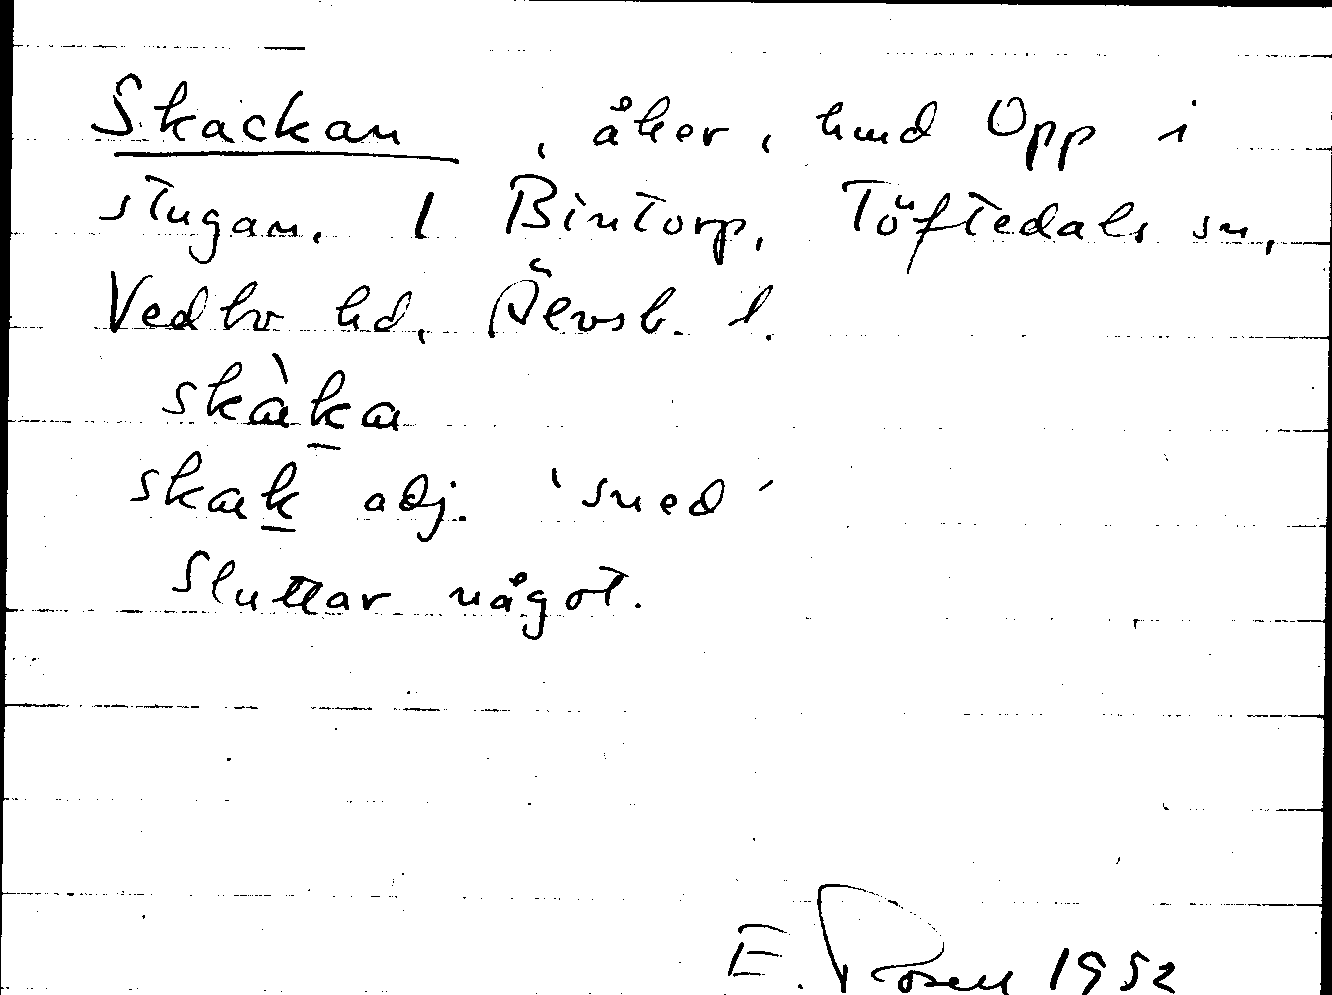 Skackan, åker, hmd Opp i
stugan. 1 Bintorp, Töftedals sn,
Vedbo hd, Älvsb. l.
skàka
skak adj. 'sned'
Sluttar något.
E. Rosell 1952